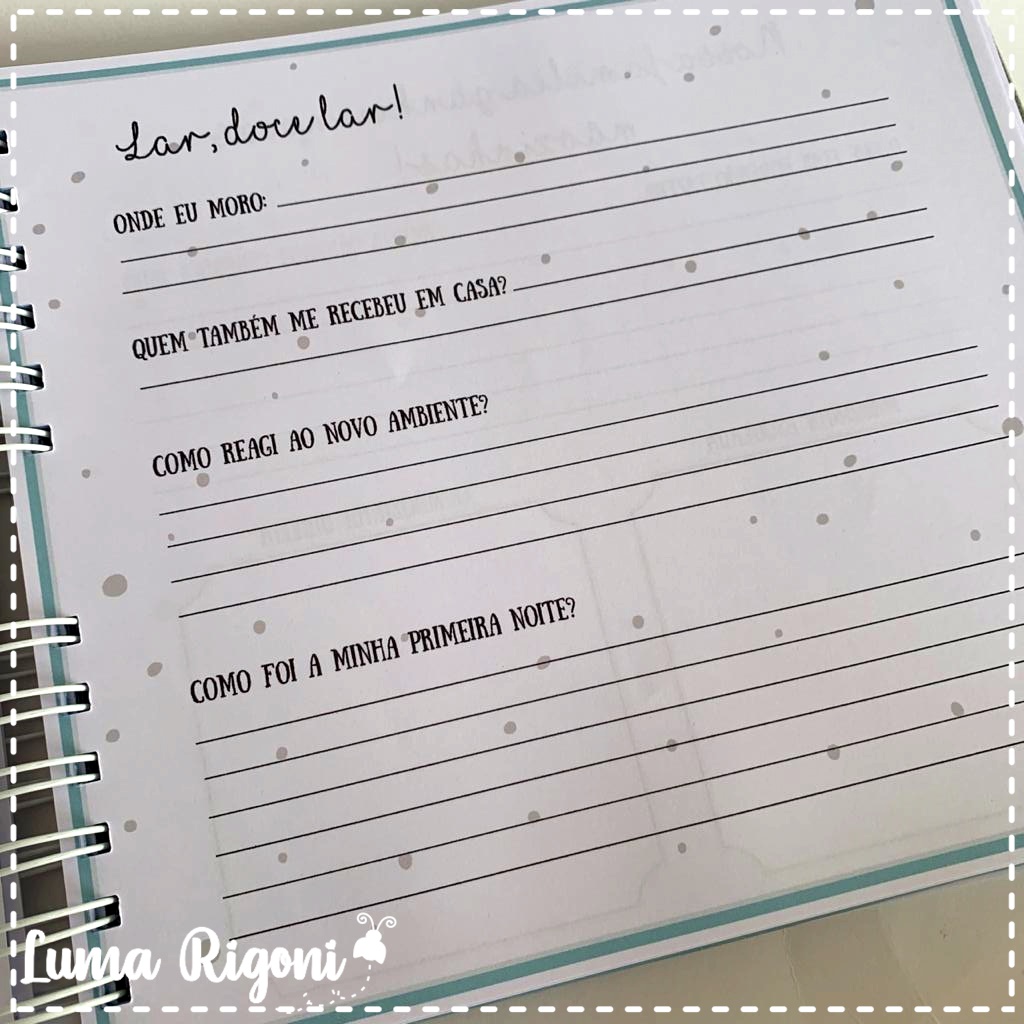 Lar, doce lar!
ONDE EU MORO:
QUEM TAMBÉM ME RECEBEU EM CASA?
COMO REAGI AO NOVO AMBIENTE?
COMO FOI A MINHA PRIMEIRA NOITE?
Luma Rigoni